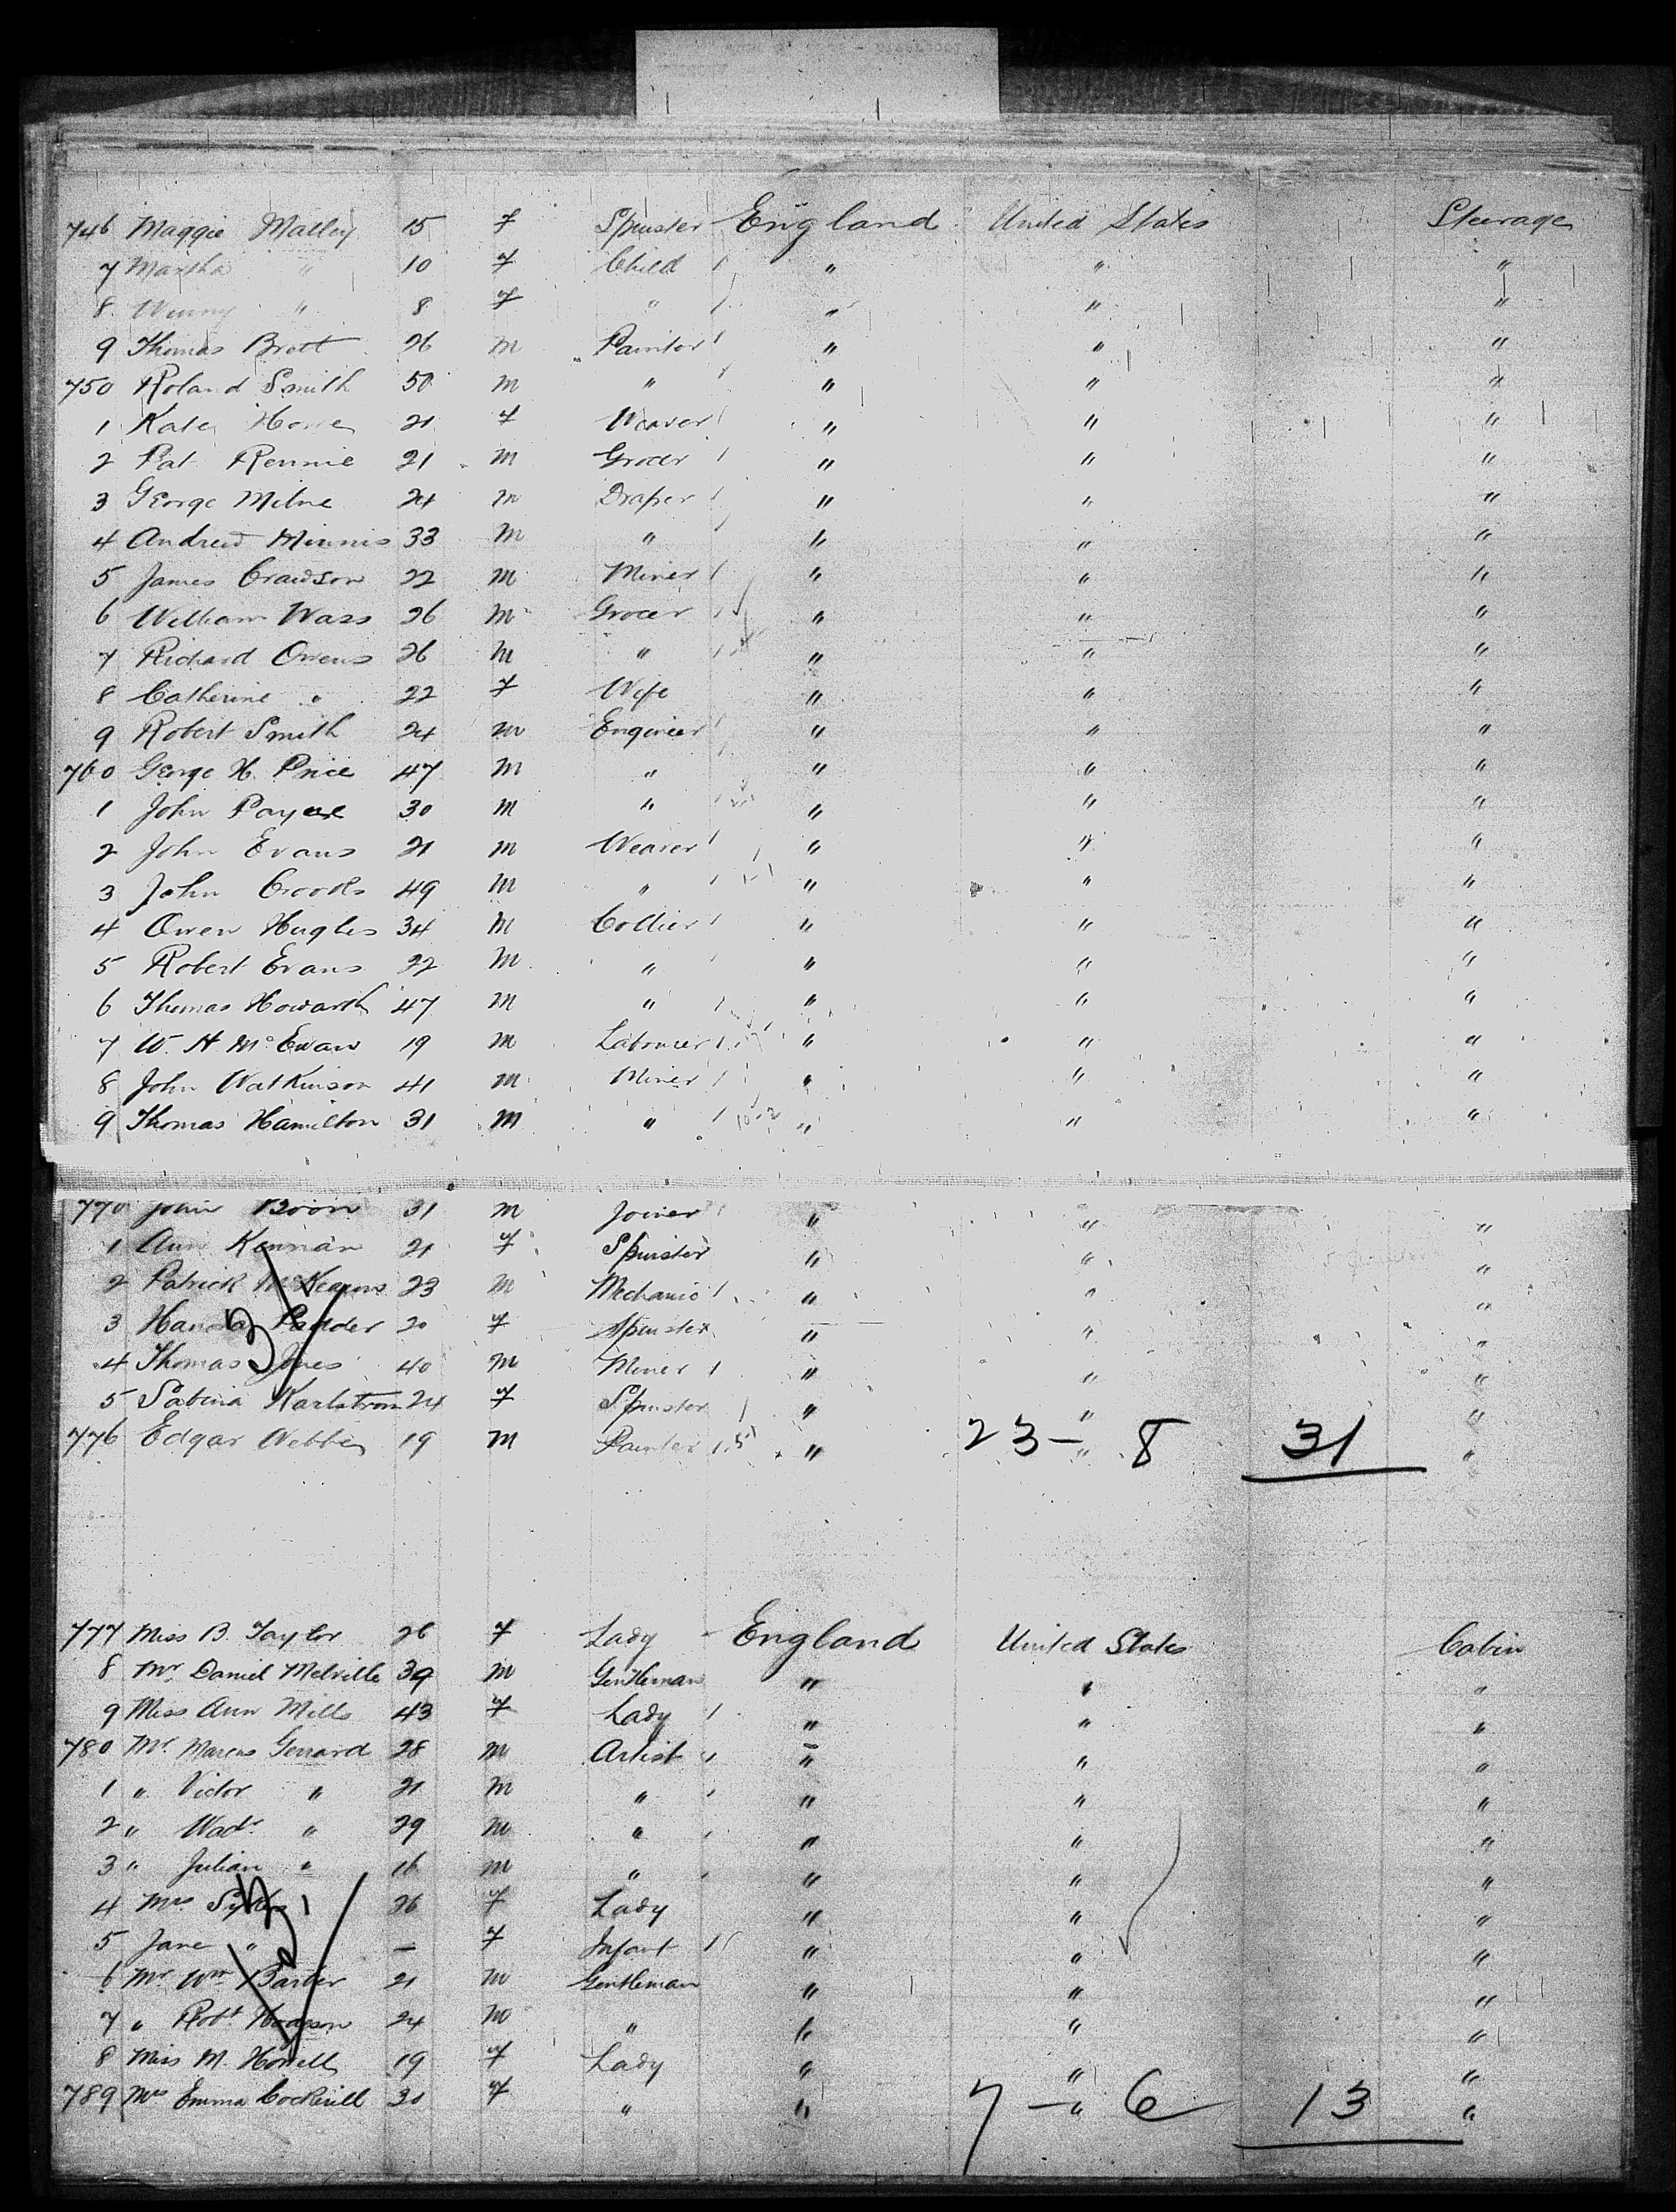 746 Maggie Malley 15 f Spinster England United States Steerage
7 Martha " 10 f Child " " "
8 Winny " 8 f " " " "
9 Thomas Brott 26 m Painter " " "
750 Roland Smith 50 m " " " "
1 Kate 21 f Weaver " " "
2 Pat Rennie 21 m Grocer " " "
3 George Milne 24 m Draper " " "
4 Andrew Minnis 33 m " " " "
5 James Crawson 22 m Miner " " "
6 William Wass 26 m Grocer " " "
7 Richard Owens 26 m " " " "
8 Catherine " 22 f Wife " " "
9 Robert Smith 24 m Engineer " " "
760 George H. Price 47 m " " " "
1 John Payne 30 m " " " "
2 John Evans 21 m Weaver " " "
3 John Crooks 49 m " " " "
4 Owen Hughes 34 m Collier " " "
5 Robert Evans 22 m " " " "
6 Thomas Howarth 47 m " " " "
7 W. H McEwan 19 m Labourer " " "
8 John Watkinson 41 m Miner " " "
9 Thomas Hamilton 31 m " " " "
770 John Boon 31 m Joiner " " "
1 Ann Kennan 21 f Spinster " " "
2 Patrick 23 m Mechanic " " "
3 20 f Spinster " " "
4 Thomas Jones 40 m Miner " " "
5 Sabina Karlstrom 24 f Spinster " " "
776 Edgar Webber 19 m Painter " " "
23 - 8 31
777 Miss B. Taylor 26 f Lady England United States Cabin
8 Mr. Daniel Melville 39 m Gentleman " " "
9 Miss Ann Mills 43 f Lady " " "
780 Mr. Marcus Gerrard 28 m Artist " " "
1 " Victor " 21 m " " " "
2 " " 29 m " " " "
3 " Julian " 16 m " " " "
4 Mrs Sykes 26 f Lady " " "
5 Jane " — f Infant " " "
6 Mr. Wm Barber 21 m Gentleman " " "
7 " Robt Hodgson 24 m " " " "
8 Miss M. Howell 19 f Lady " " "
789 Mrs Emma Cockerill 30 f " " " "
7 - 6 13